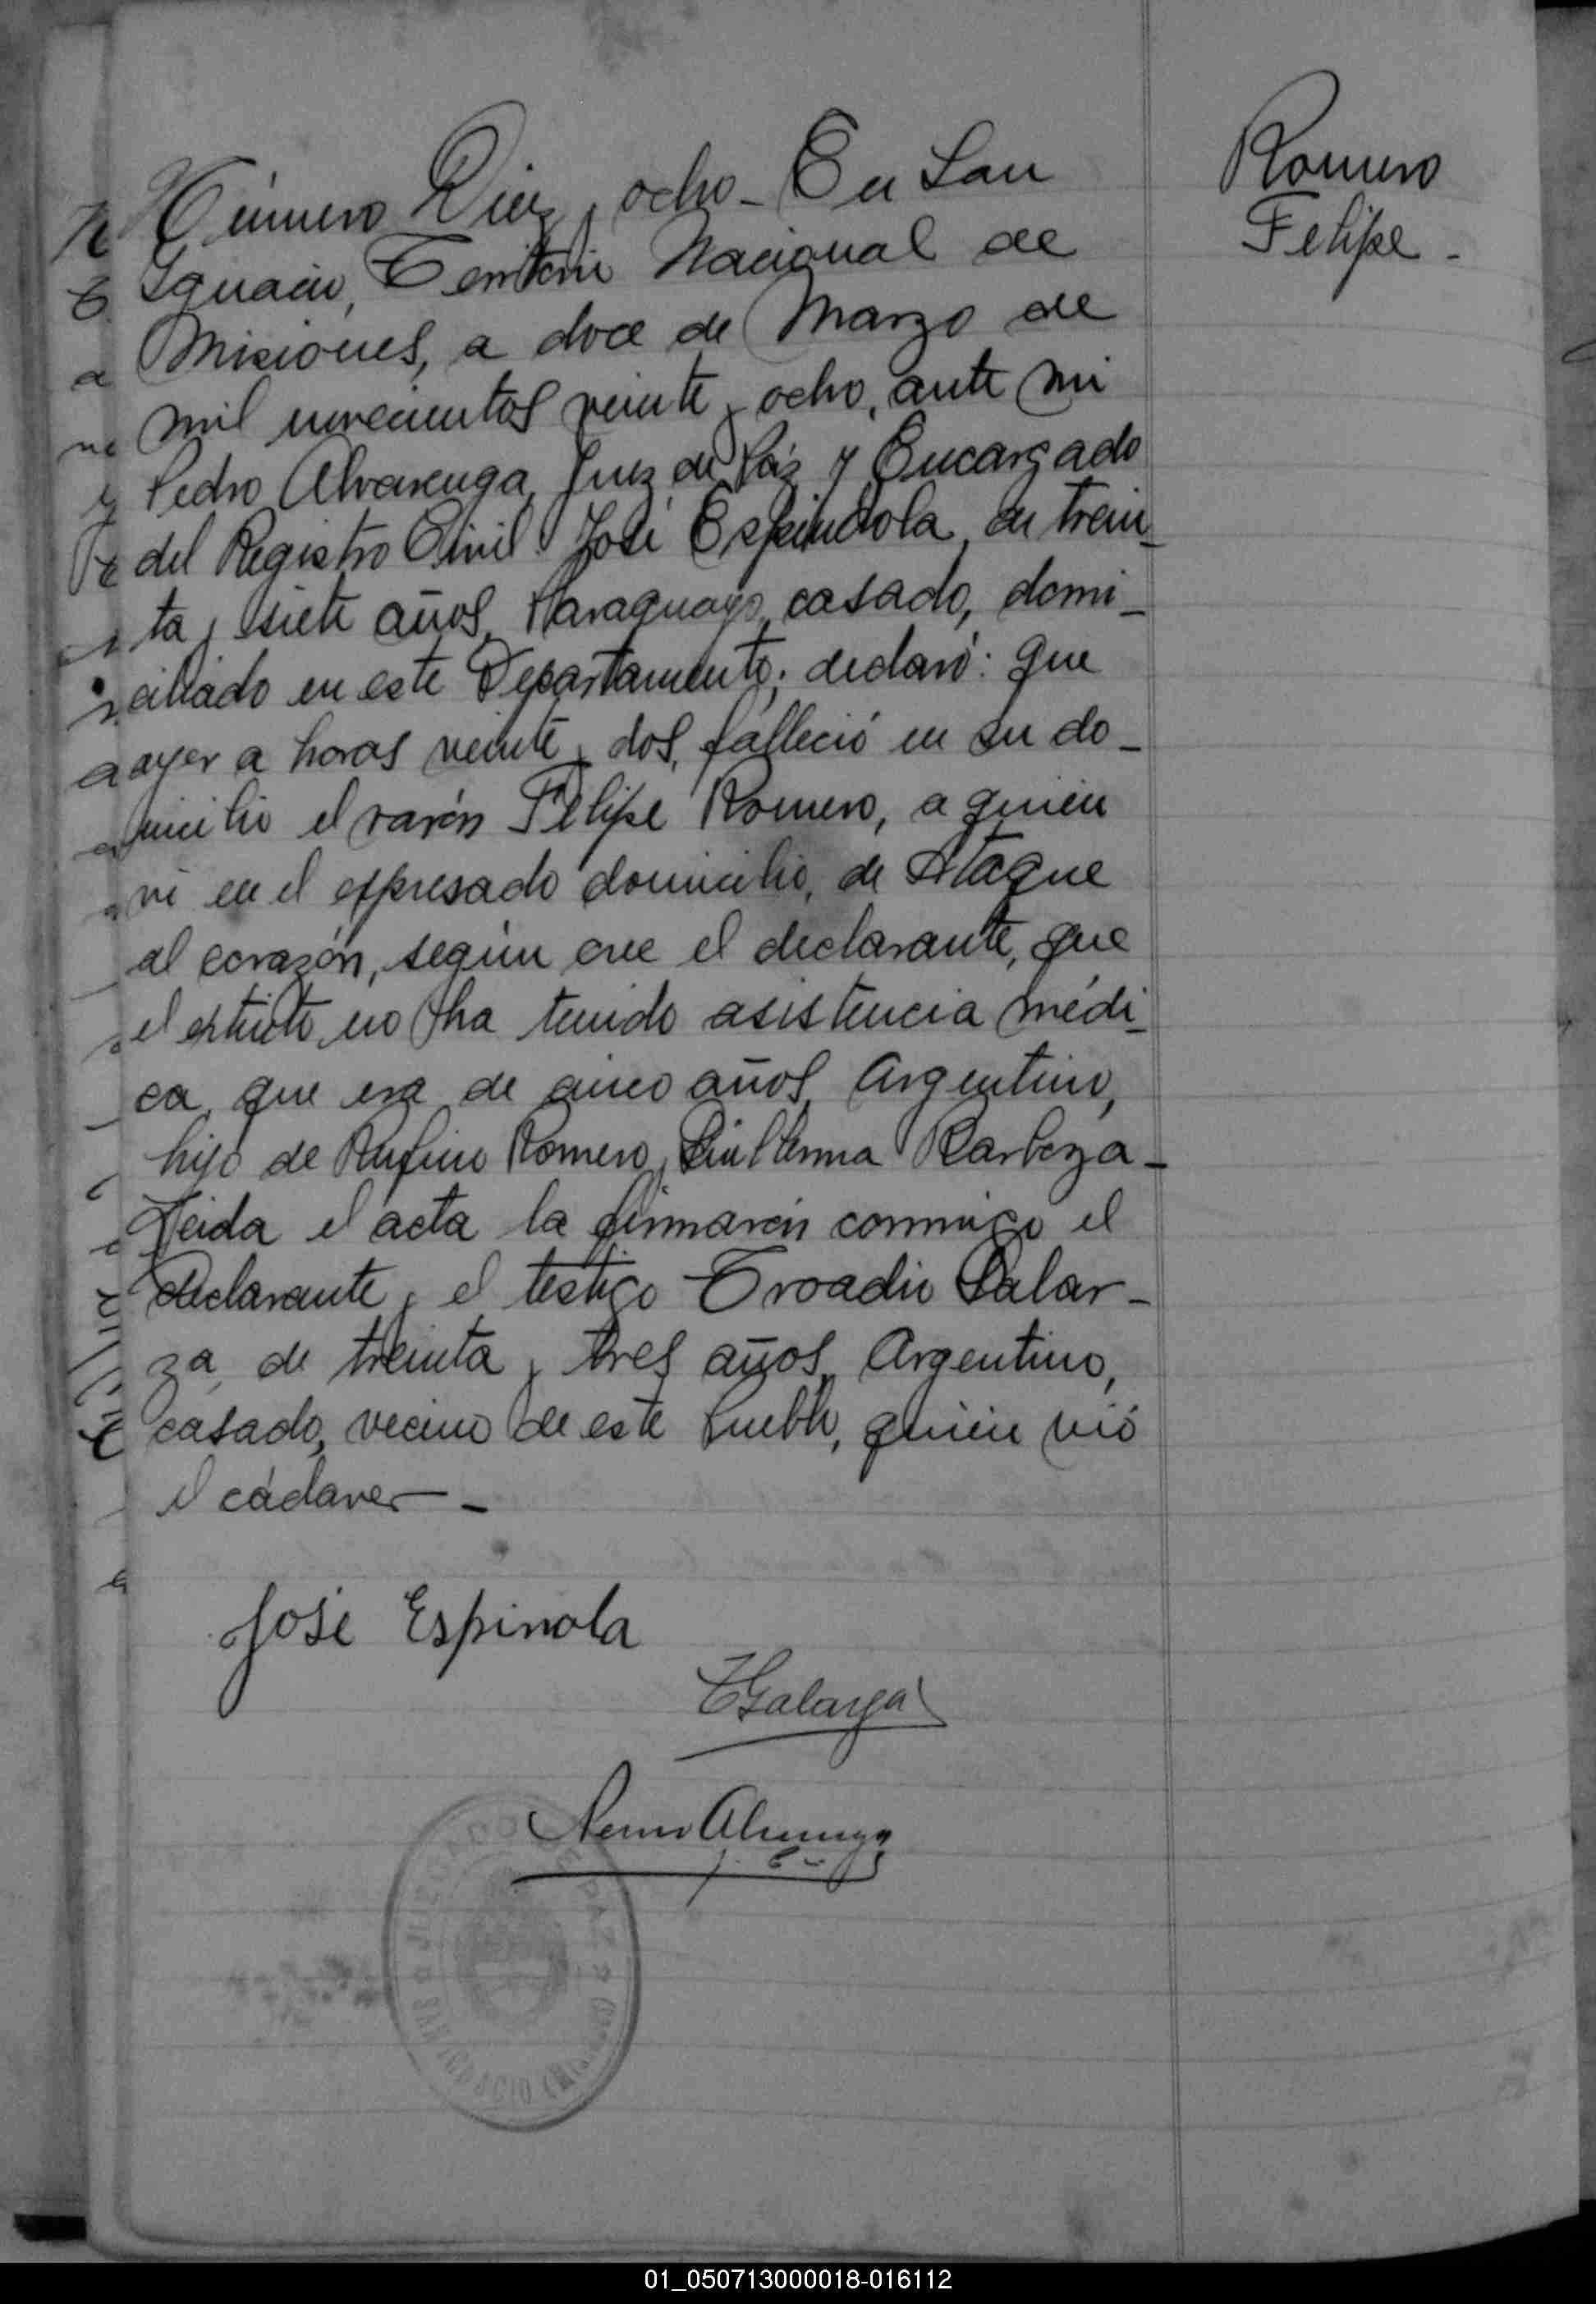 Romero
Felipe -
Número Diez y ocho - En San
Ignacio, Territorio Nacional de
Misiones, a doce de Marzo de
mil novecientos veinte y ocho, ante mi
Pedro Alvarenga, Juez de Páz y Encargado
del Registro Civil. José Espindola, de trein_
ta y siete años, Paraguayo, casado, domi_
ciliado en este Departamento; declaró: que
ayer a horas veinte y dos, falleció en su do_
micilio el varón Felipe Romero, a quien
vi en el expresado domicilio, de Ataque
al corazón, según cree el declarante, que
el extinto no ha tenido asistencia médi_
ca, que era de cinco años, Argentino,
hijo de Rufino Romero y
Leida el acta la firmarón conmigo el
declarante y el testigo Troadio Galar_
za, de treinta y tres años, Argentino,
casado, vecino de este Pueblo, quien vió
el cádaver - -
José Espinola
TGalarza
Alvarenga
JUZGADO DE PAZ
SAN IGNACIO
01_050713000018-016112